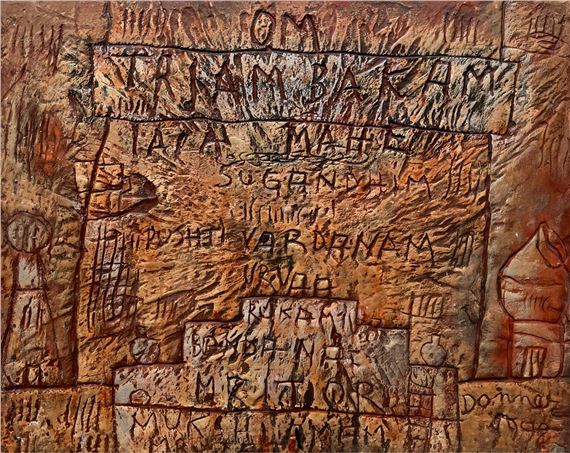 OM
TRIAMBAKAM
IAJA MAHE
SUGANDHIM
PUSHTI VARDANAM
URVAA
RUKAMI
BANDANA
MRITOR
MUKSHIMAM
Donner